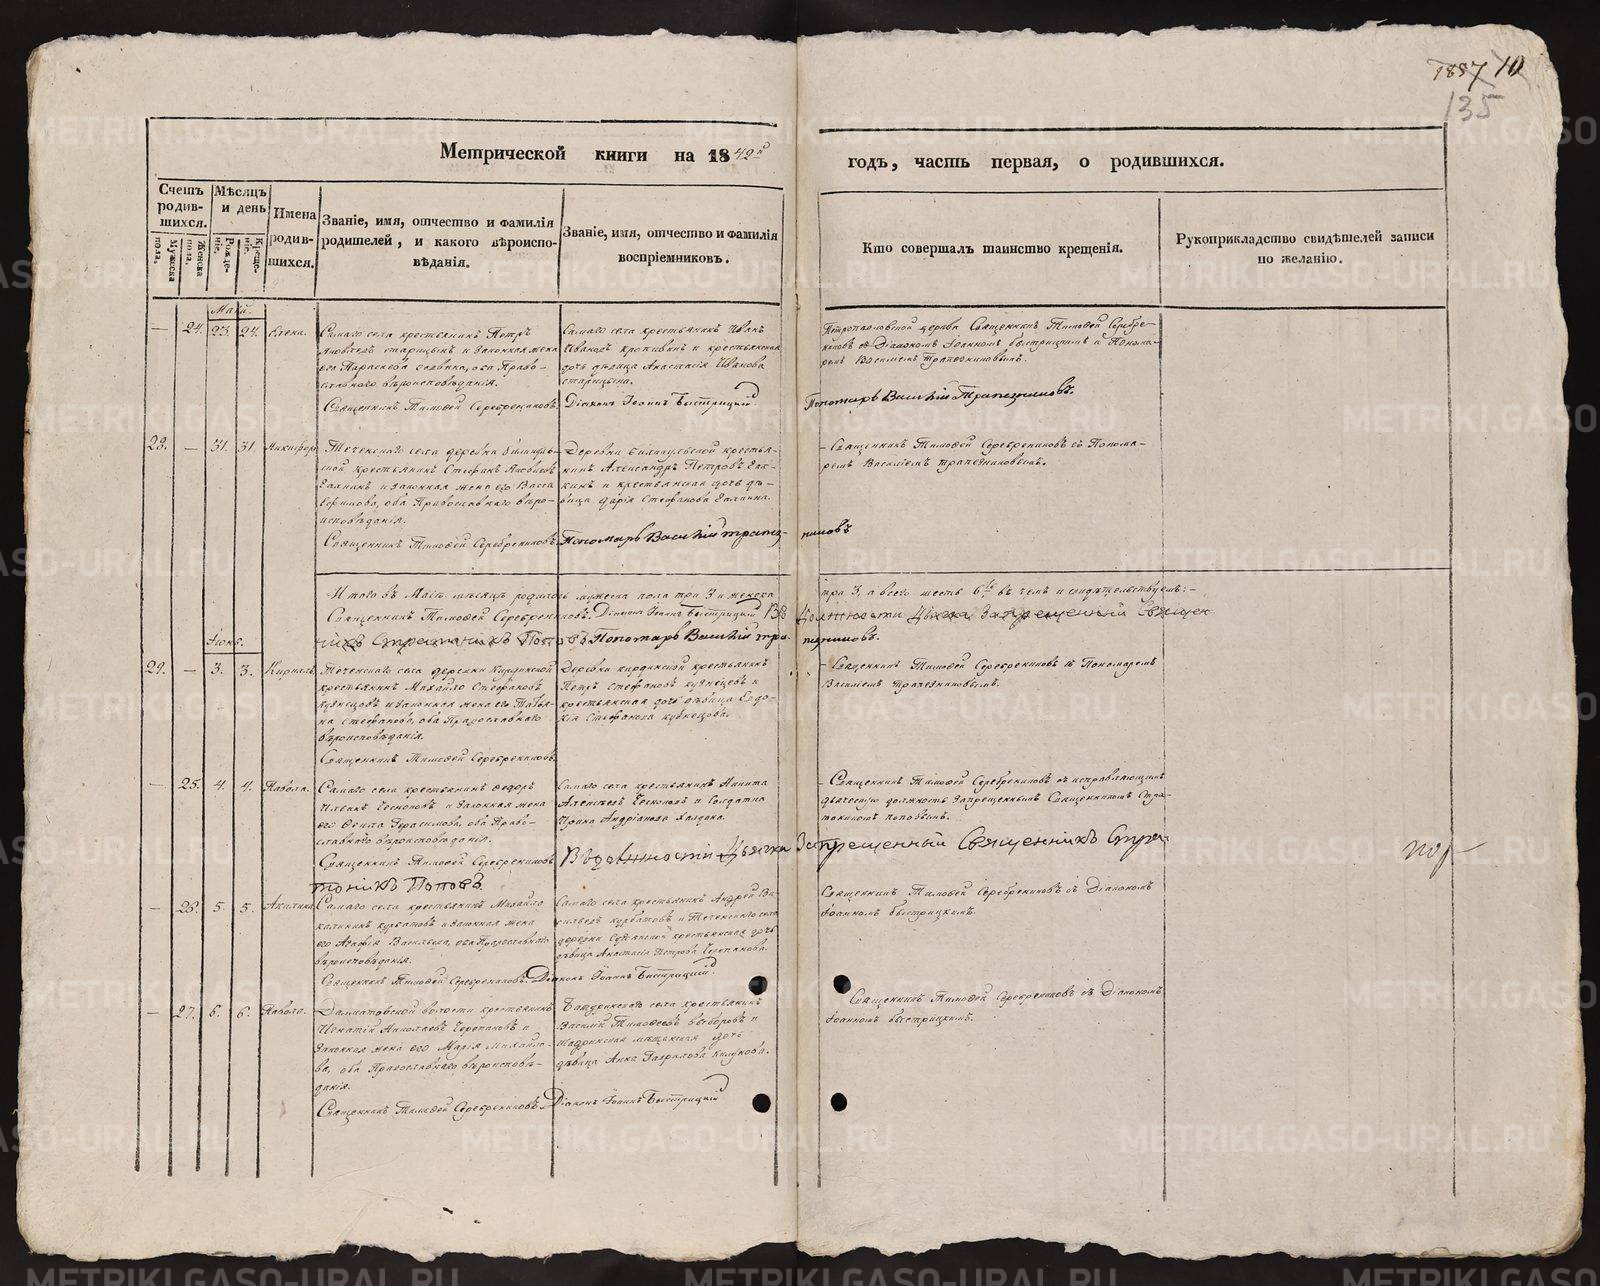 1857 10
135
Метрической книги на 1842й
годъ, часть первая, о родившихся.
Счетъ родив-шихся.
Мѣсяцъ и день
Имена родив-шихся.
Званіе, имя, отчество и фамилія родителей, и какого вѣроиспо-вѣданія.
Званіе, имя, отчество и фамилія воспріемниковъ.
Кто совершалъ таинство крещенія.
Рукоприкладство свидѣтелей записи по желанію.
Мужеска пола.
Женска пола.
Рожде-ніе.
Креще-ніе.
Маій.
— 24. 23. 24. Елена.
Самаго села крестьянинъ Петръ
Яковлевъ старицынъ и законная жена
его Параскева оба Право-
славнаго вѣроисповѣданія.
Священникъ Тимофей Серебрениковъ.
Самаго села крестьянинъ Иванъ
Ивановъ и крестьянская
дочь дѣвица Анастасія Иванова
старицына.
Діаконъ Іоаннъ Быстрицкій.
Петропавловской церкви Священникъ Тимофей Серебре-
никовъ съ Діакономъ Іоанномъ быстрицкимъ и Понома-
ремъ Василіемъ Трапезниковымъ.
Пономарь Василій Трапезниковъ.
23. — 31. 31. Никифоръ
Теченскаго села деревни
крестьянинъ Стефанъ Яковлевъ
Галкинъ и законная жена его Васса
Ефимова, оба Православнаго вѣро-
исповѣданія.
Священникъ Тимофей Серебрениковъ.
Деревни крестья-
нинъ Александръ Петровъ Гал-
кинъ и крестьянская дочь дѣ-
вица Дарія Стефанова Галкина.
Пономарь Василій трапез-
никовъ
- Священникъ Тимофей Серебрениковъ съ Понома-
ремъ Василіемъ трапезниковымъ.
Итого въ Маіѣ мѣсяцѣ родилось мужеска пола три 3 и женска
три 3, а всего шесть 6ть въ чемъ и свидѣтельствуемъ: -
Священникъ Тимофей Серебрениковъ. Діаконъ Іоаннъ Быстрицкій Въ
Должности Дьячка Запрещенный Священ
никъ Стратоникъ Поповъ Пономарь Василій тра-
пезниковъ.
Іюнь.
29. — 3. 3. Кириллъ
Теченскаго села деревни Кирдинской
крестьянинъ Михайло Стефановъ
кузнецовъ и законная жена его Татья-
на Стефанова, оба Православнаго
вѣроисповѣданія.
Священникъ Тимофей Серебрениковъ.
Деревни кирдинской крестьянинъ
Петръ Стефановъ кузнецовъ и
крестьянская дочь дѣвица Евдо-
кія Стефанова кузнецова.
- Священникъ Тимофей Серебрениковъ съ Пономаремъ
Василіемъ Трапезниковымъ.
— 25. 4. 4. Павла.
Самаго села крестьянинъ Федоръ
и законная жена
его Герасимова, оба Право-
славнаго вѣроисповѣданія.
Священникъ Тимофей Серебрениковъ
Самаго села крестьянинъ Никита
Алексѣевъ и Солдатка
Ирина Андріанова
- Священникъ Тимофей Серебрениковъ съ исправляющимъ
дьяческую должность Запрещеннымъ Священникомъ Стра-
тоникомъ поповымъ.
Въ должности Дьячка Запрещенный Священникъ Стра-
тоникъ Поповъ
— 26. 5. 5. Акилина
Самаго села крестьянинъ Михайло
курбатовъ и законная жена
его Агафія Васильева, оба Православнаго
вѣроисповѣданія.
Священникъ Тимофей Серебрениковъ. Діаконъ Іоаннъ Быстрицкій.
Самаго села крестьянинъ Андрей Ва-
сильевъ курбатовъ и Теченскаго села
деревни крестьянская дочь
дѣвица Анастасія Петрова Черепанова.
Священникъ Тимофей Серебрениковъ съ Діакономъ
Іоанномъ быстрицкимъ.
— 27. 6. 6. Павла.
Далматовской волости крестьянинъ
Игнатій Николаевъ Черепановъ и
законная жена его Марія Михайло-
ва, оба Православнаго вѣроисповѣ-
данія.
Священникъ Тимофей Серебрениковъ.
Батуринскаго села крестьянинъ
Василій Тимофеевъ и
Шадринская мѣщанская дочь
дѣвица Анна Гаврилова
Діаконъ Іоаннъ Быстрицкій
Священникъ Тимофей Серебрениковъ съ Діакономъ
Іоанномъ быстрицкимъ.
METRIKI.GASO-URAL.RU